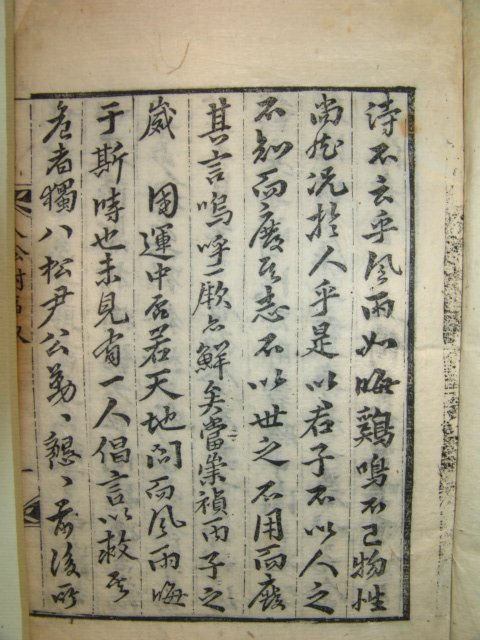 詩不云乎風雨如晦鷄鳴不已物性
尙然况於人乎是以君子不以人之
不知而廢其志不以世之不用而廢
其言嗚呼一厥亦鮮矣當崇禎丙子之
歲 國運中否若天地閉而風雨晦
于斯時也未見有一人倡言以救其
危者獨八松尹公勤、懇、前後所